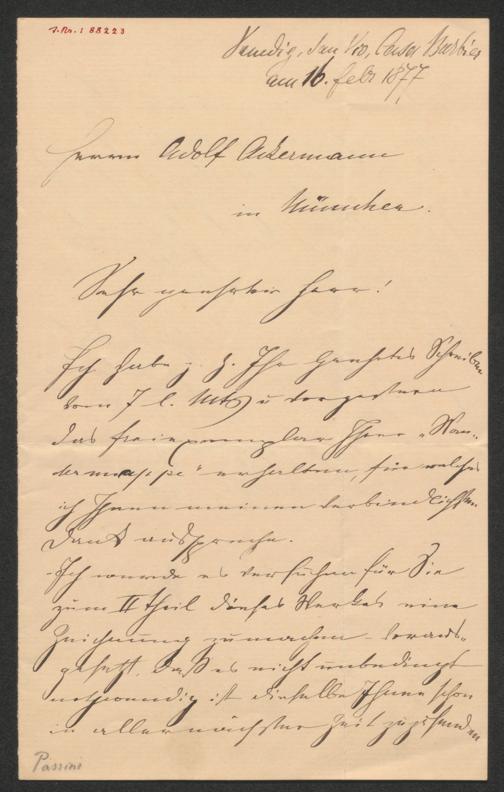 J.Nr.: 88223
Venedig, San Vio, Casa Barbier
am 16. febr 1877
Herrn Adolf Ackermann
in München.
Sehr geehrter Herr!
Ich habe z. Z. Ihr Geehrtes Schreiben
vom 7 l. Mts u vorgestern
das freiexemplar Ihrer "Wan-
dermappe" erhalten, für welches
ich Ihnen meinen verbindlichsten
Dank ausspreche.
Ich werde es versuchen für Sie
zum II theil dieses Werkes eine
Zeichnung zu machen - voraus-
gesetzt, daß es nicht unbedingt
nothwendig ist dieselbe Ihnen schon
in allernächster Zeit zuzusenden
Passini